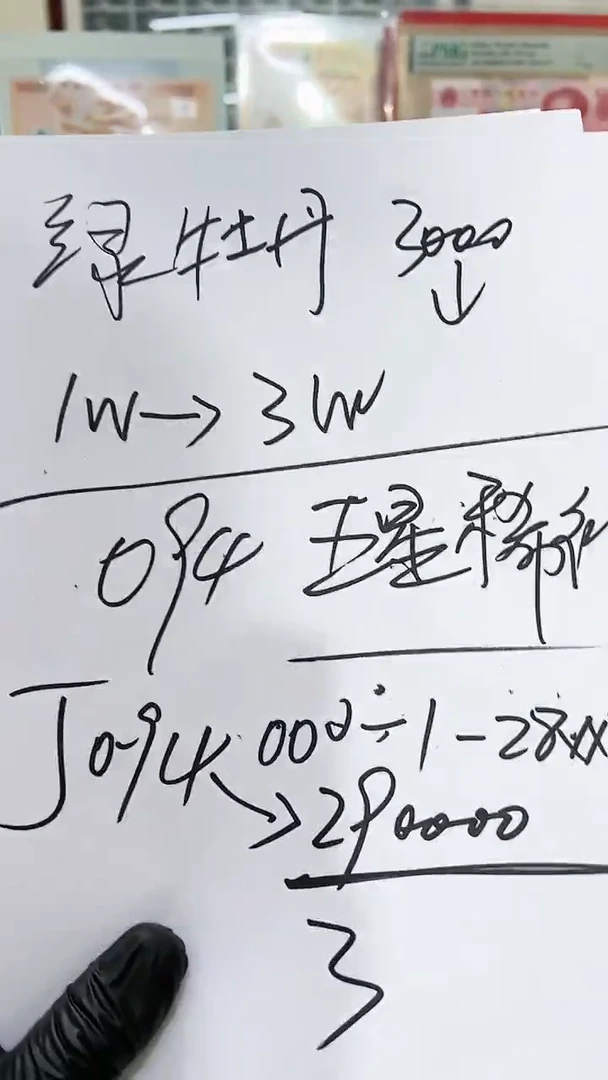 PMG
绿牡丹 3000
↓
1W→3W
094 五星稀
J094 000÷1-28xx
→290000
3